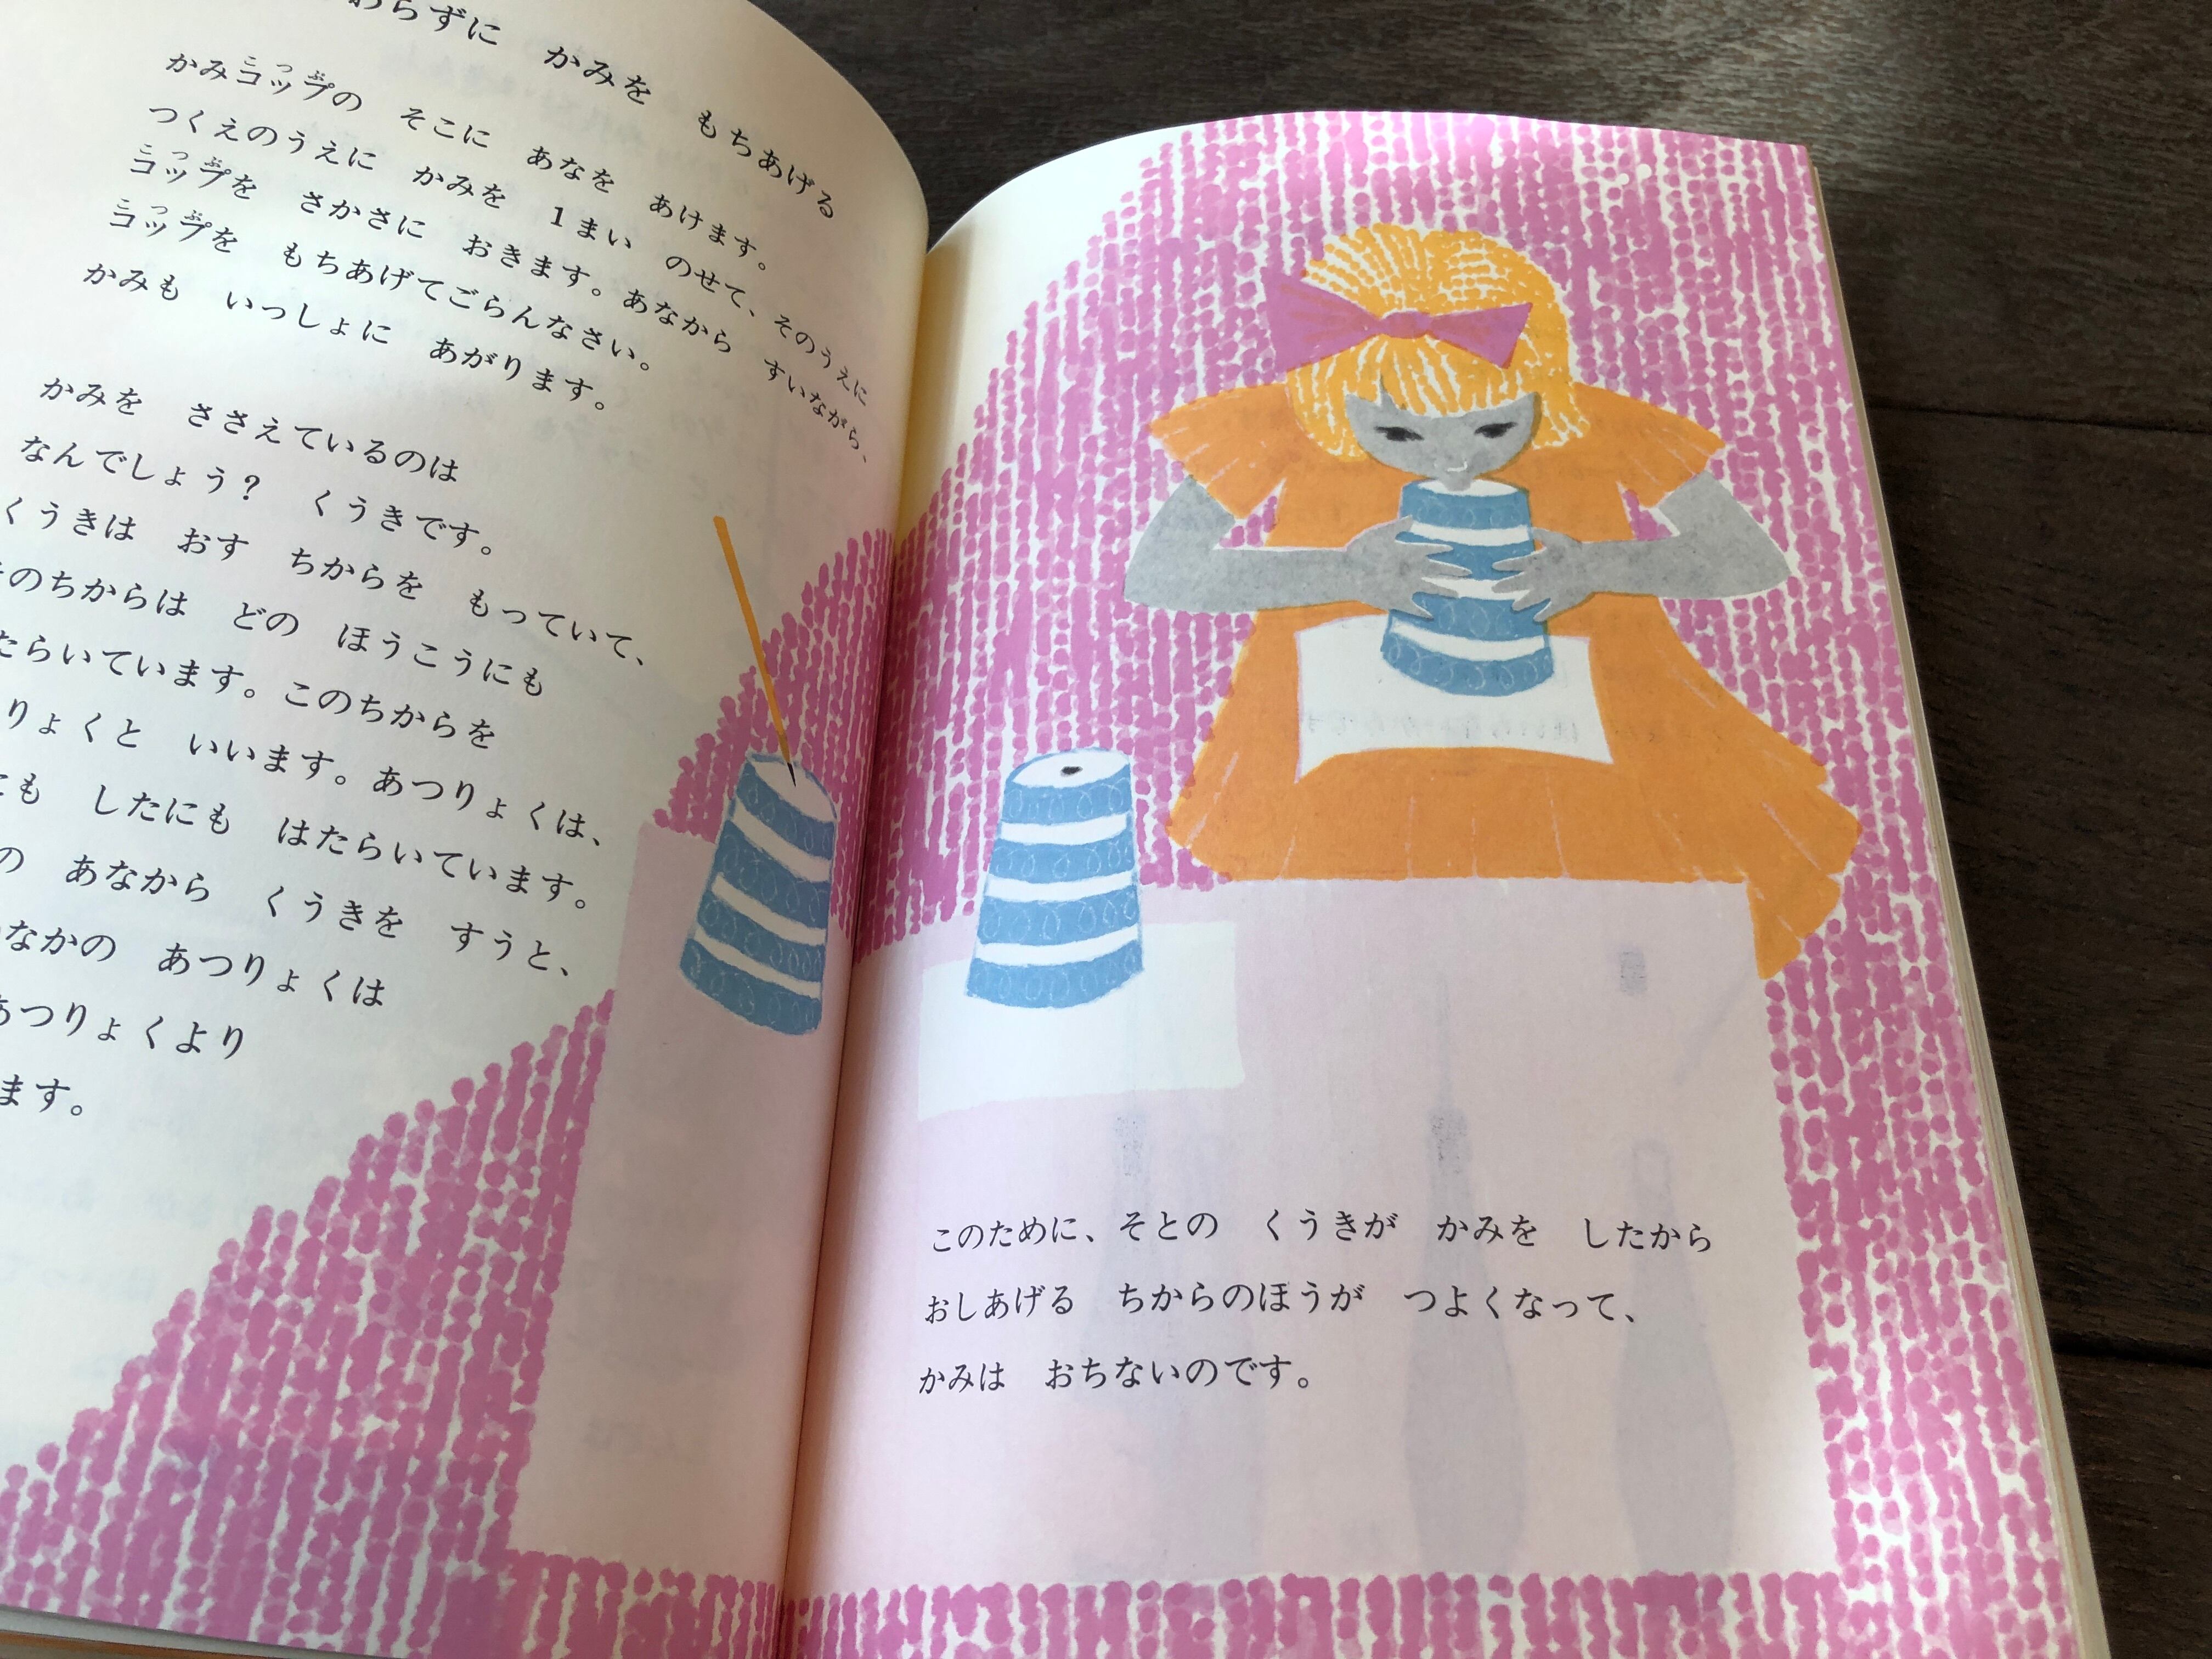 わらずに　かみを　もちあげる
かみコップの　そこに　あなを　あけます。
つくえのうえに　かみを　1まい　のせて、そのうえに
コップを　さかさに　おきます。あなから　すいながら、
コップを　もちあげてごらんなさい。
かみも　いっしょに　あがります。
かみを　ささえているのは
なんでしょう？　くうきです。
くうきは　おす　ちからを　もっていて、
のちからは　どの　ほうこうにも
たらいています。このちからを
りょくと　いいます。あつりょくは、
も　したにも　はたらいています。
の　あなから　くうきを　すうと、
なかの　あつりょくは
あつりょくより
ます。
このために、そとの　くうきが　かみを　したから
おしあげる　ちからのほうが　つよくなって、
かみは　おちないのです。